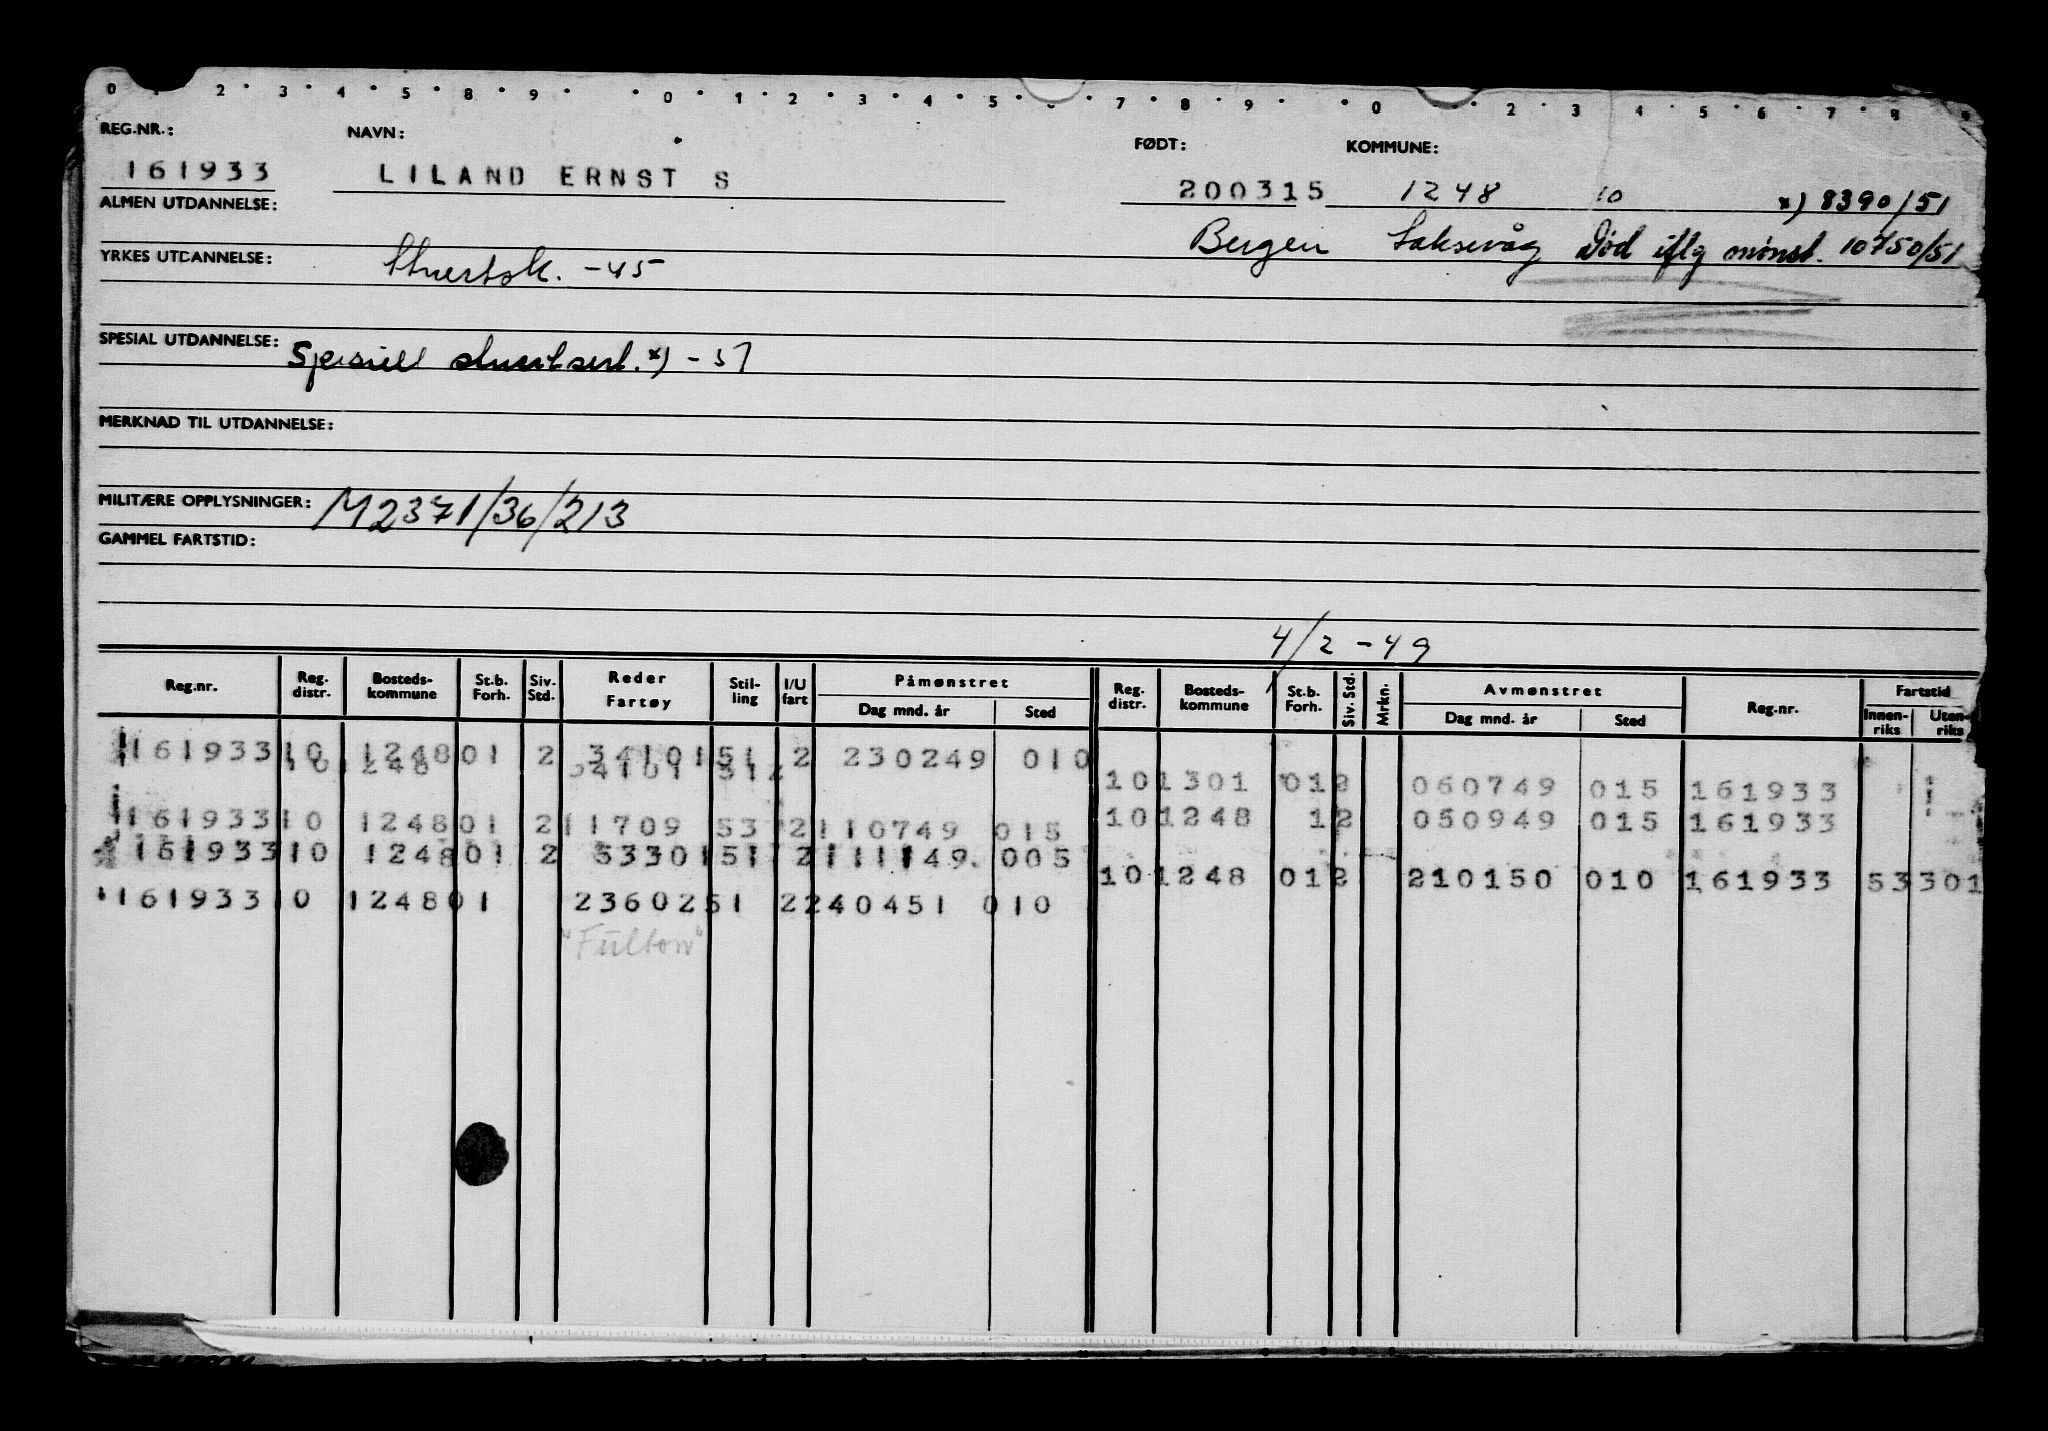 0 2 3 4 5 8 9 0 1 2 3 4 5 7 8 9 0 2 3 4 5 6 7 8
REG.NR.: NAVN: FØDT: KOMMUNE:
161933 LILAND ERNST S 200315 1248 10 x) 8390/51
ALMEN UTDANNELSE: Bergen Laksevåg Død iflg mønst. 10750/51
YRKES UTDANNELSE: Stuertsk. -45
SPESIAL UTDANNELSE: Spesiell stuertsert. x) -51
MERKNAD TIL UTDANNELSE:
MILITÆRE OPPLYSNINGER: M2371/36/213
GAMMEL FARTSTID:
4/2 -49
Reg.nr. Reg. distr. Bosteds- kommune St.b. Forh. Siv. Std. Reder Fartøy Stil- ling I/U fart Påmønstret Dag mnd. år Sted Reg. distr. Bosteds- kommune St.b. Forh. Siv. Std. Mrkn. Avmønstret Dag mnd. år Sted Reg.nr. Fartstid Innen- riks Uten- riks
161933 10 1248 01 2 34101 51 2 230249 010
10 1301 01 2 060749 015 161933
161933 10 1248 01 2 11709 53 2 110749 015 10 1248 1 2 050949 015 161933
161933 10 1248 01 2 53301 51 2 111149 005
10 1248 01 2 210150 010 161933 53301
161933 10 1248 01 23602 51 2 240451 010
"Fulton"